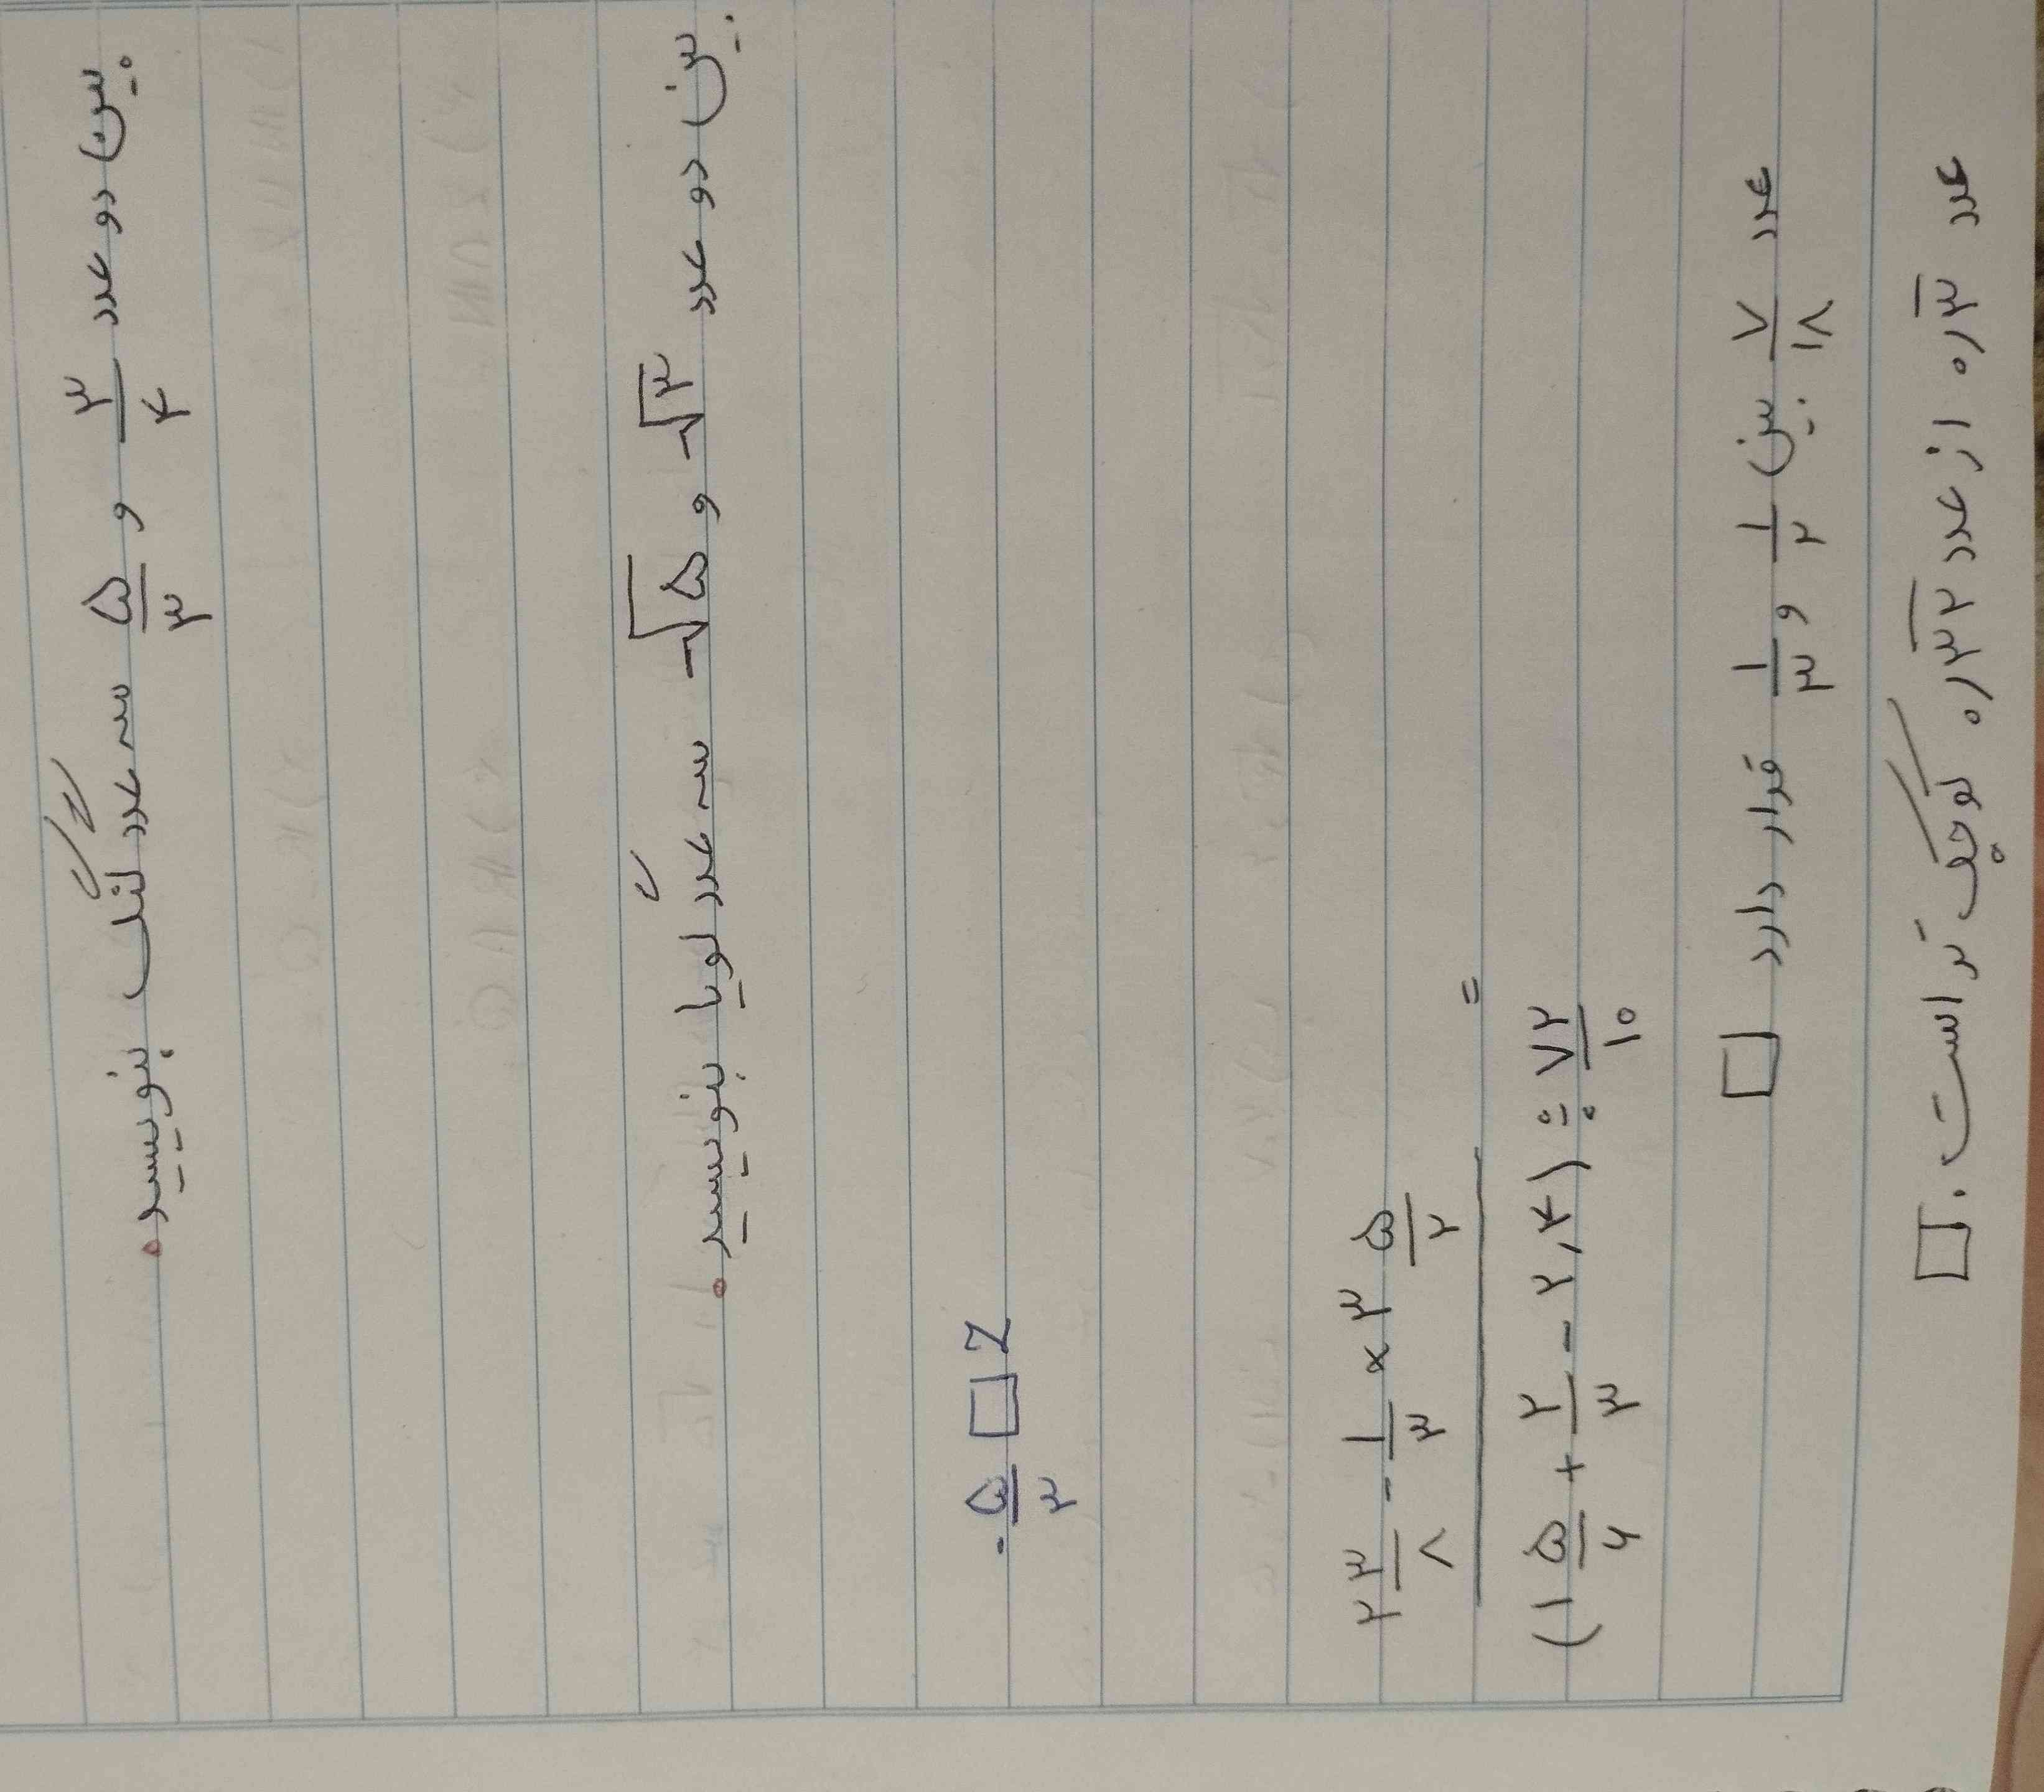 بین دو عدد ۳/۴ و ۵/۳ سه عدد گنگ بنویسید.
بین دو عدد √۳ و √۵ سه عدد گویا بنویسید.
-۵/۲ □ Z
(۲ ۳/۸ - ۱/۳ × ۳ ۵/۲) / ((۱ ۵/۶ + ۲/۳ - ۲٫۴) ÷ ۷۲/۱۰) =
عدد ۷/۱۸ بین ۱/۲ و ۱/۳ قرار دارد □
عدد ۰٫۳̅ از عدد ۰٫۳۲̅ کوچک تر است. □